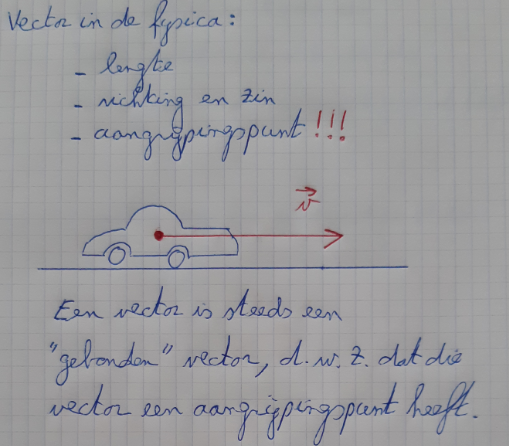 Vector in de fysica:
- lengte
- richting en zin
- aangrijpingspunt !!!
v
Een vector is steeds een
"gebonden" vector, d.w.z. dat die
vector een aangrijpingspunt heeft.